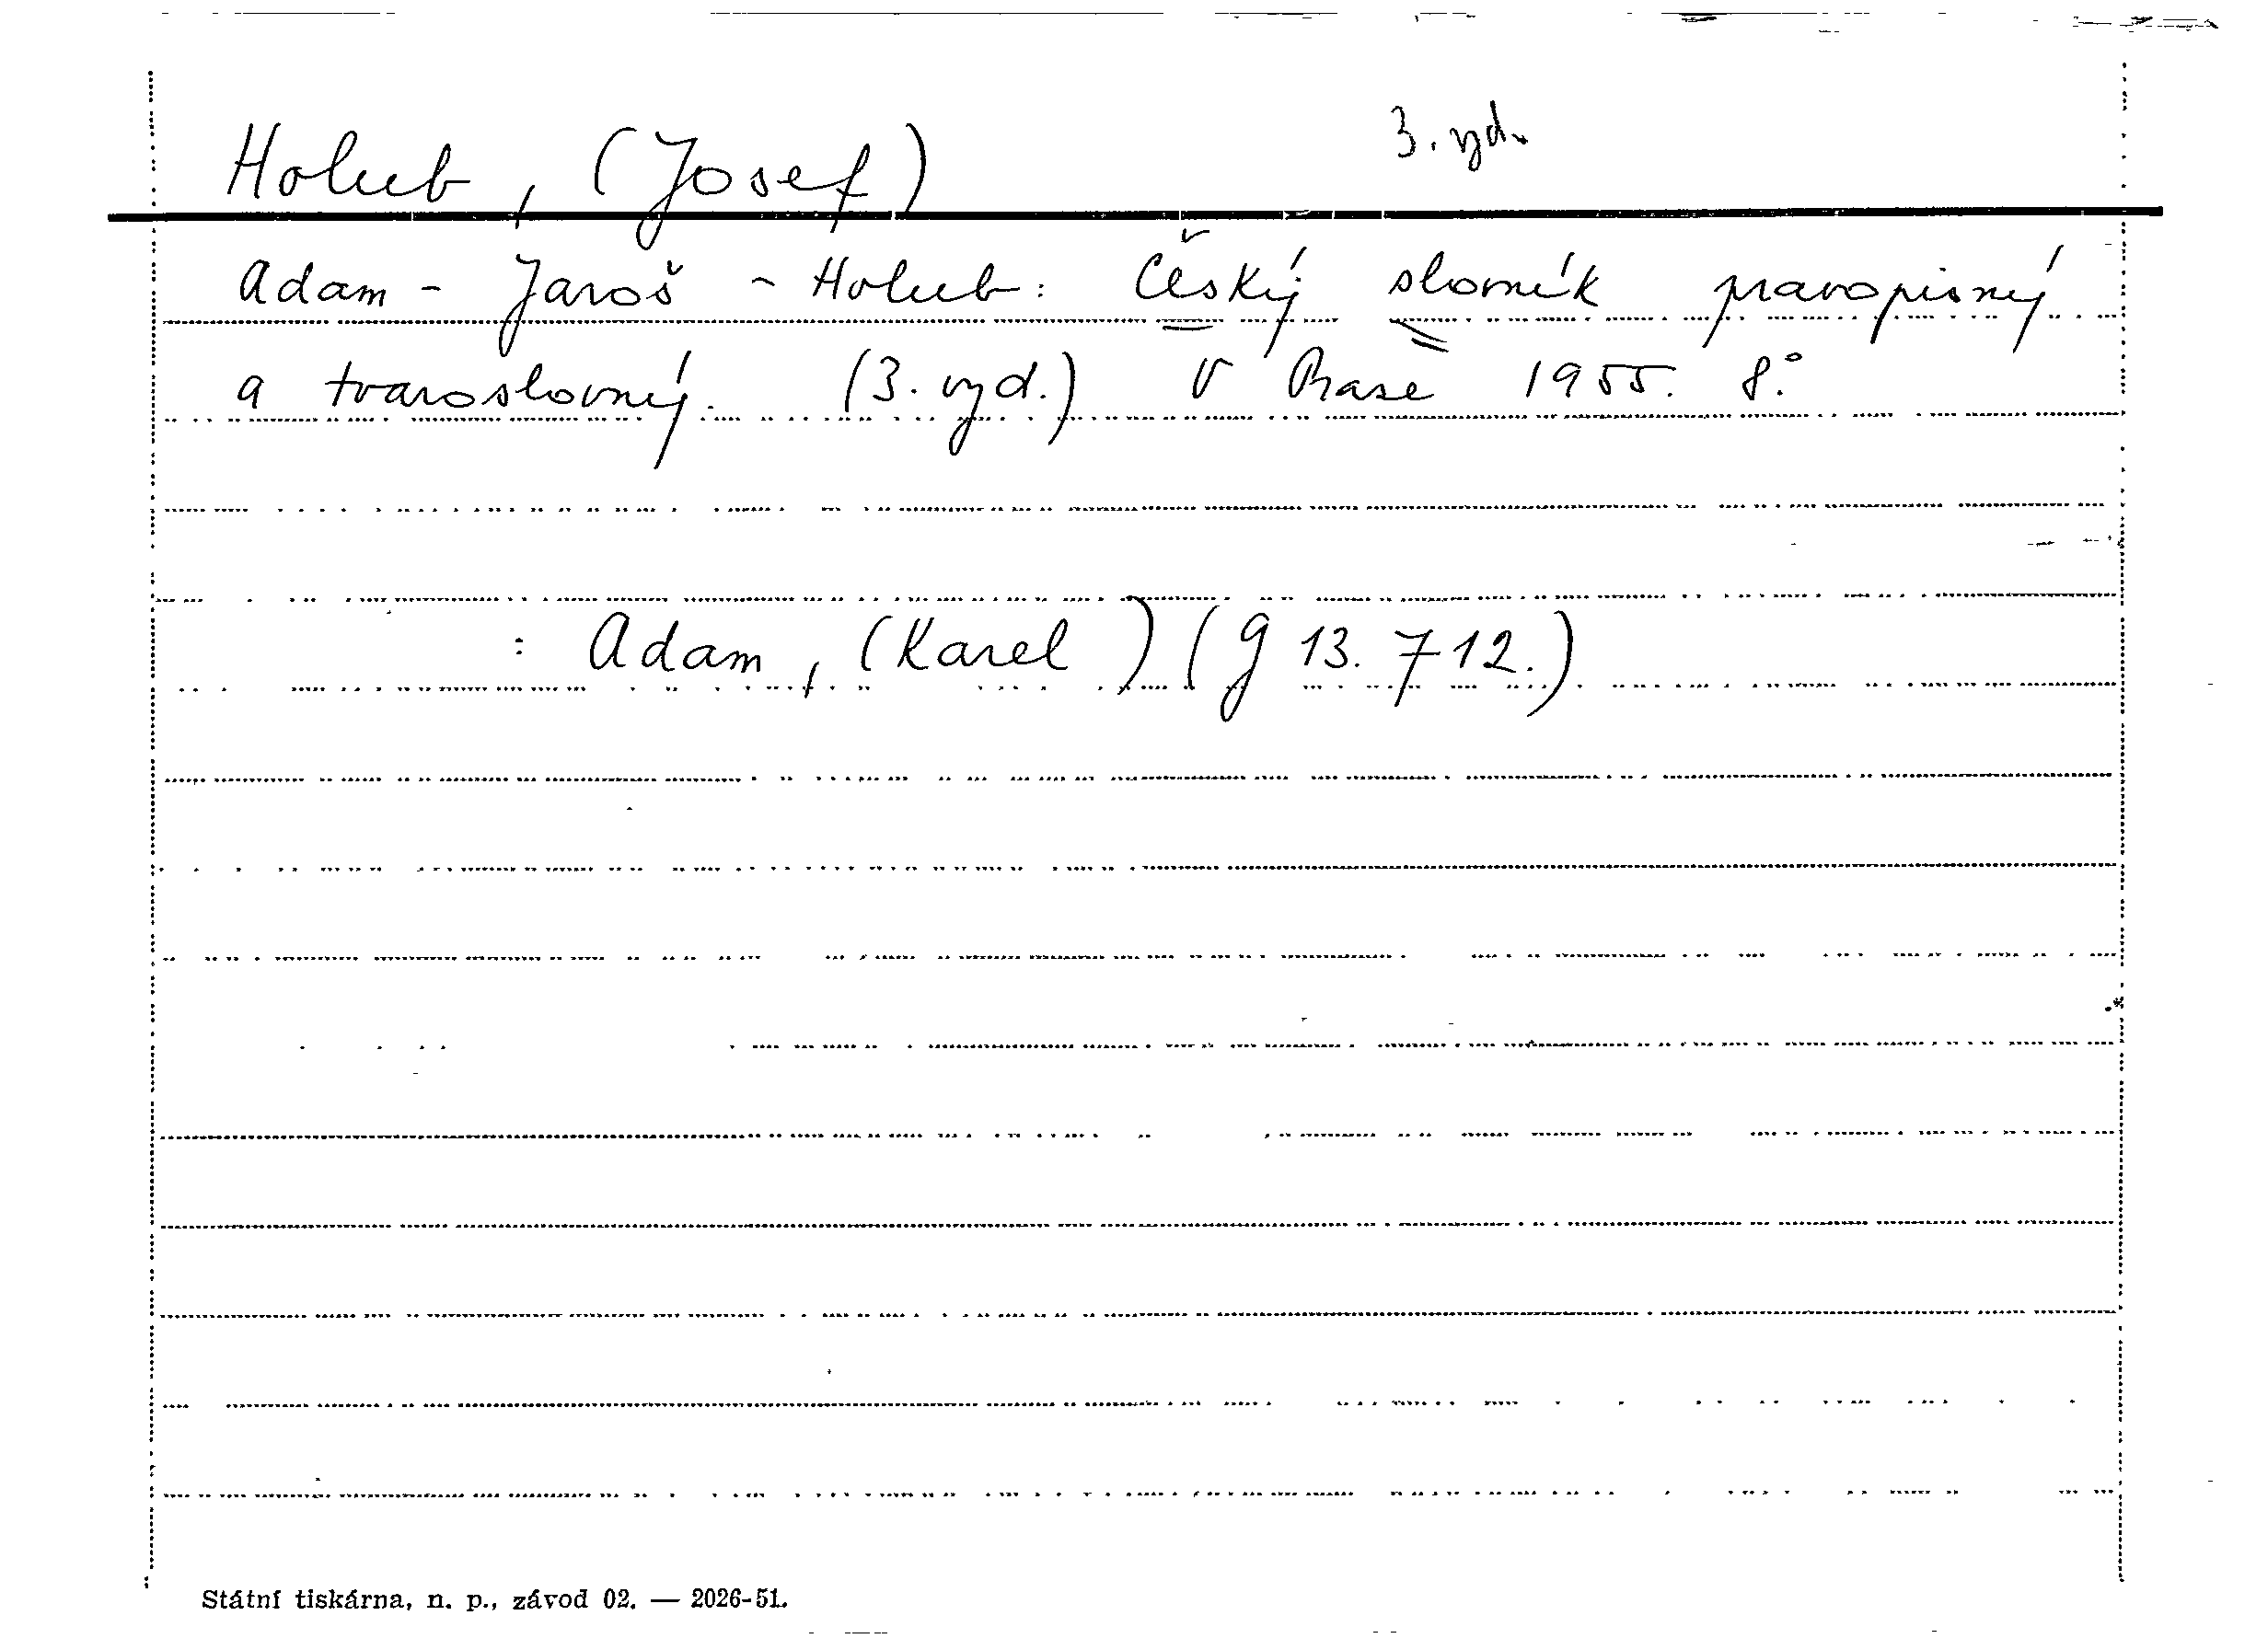 Holub, (Josef) 3. vyd.
Adam - Jaroš - Holub: Český slovník pravopisný
a tvaroslovný. (3. vyd.) V Praze 1955. 8°.
: Adam, (Karel) (g 13.712.)
Státní tiskárna, n. p., závod 02. — 2026-51.